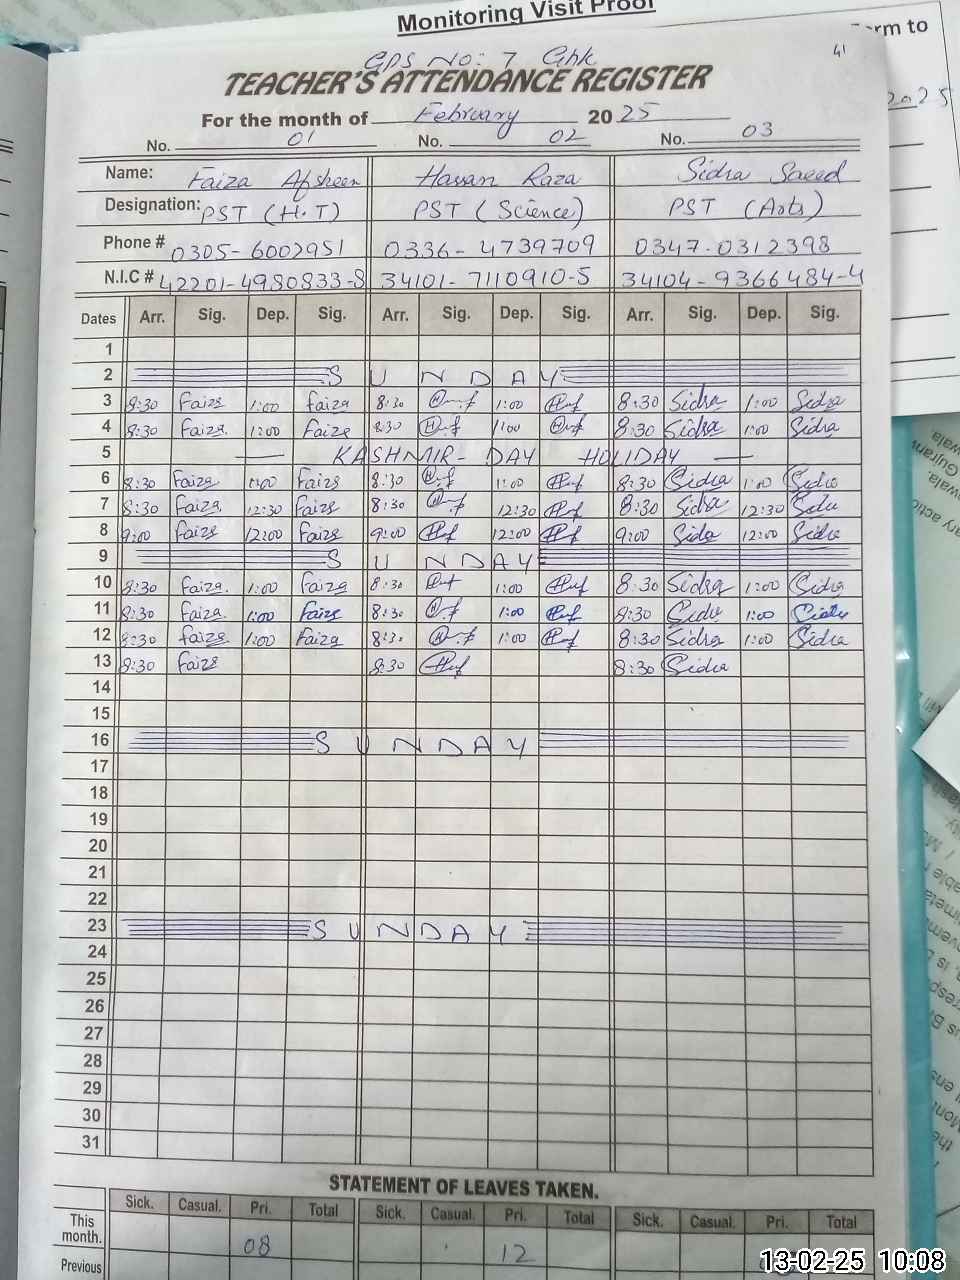 Monitoring Visit Proof
rm to
2025
41
GPS No: 7 Ghk
TEACHER'S ATTENDANCE REGISTER
For the month of February 2025
No. 01 No. 02 No. 03
Name: Faiza Afsheen Hassan Raza Sidra Saeed
Designation: PST (H.T) PST (Science) PST (Arts)
Phone # 0305-6002951 0336-4739709 0347-0312398
N.I.C # 42201-4980833-8 34101-7110910-5 34104-9366484-4
Dates Arr. Sig. Dep. Sig. Arr. Sig. Dep. Sig. Arr. Sig. Dep. Sig.
1
2 SUNDAY
3 8:30 Faiza 1:00 Faiza 8:30 1:00 8:30 Sidra 1:00 Sidra
4 8:30 Faiza 1:00 Faiza 8:30 1:00 8:30 Sidra 1:00 Sidra
5 KASHMIR-DAY HOLIDAY
6 8:30 Faiza 1:00 Faiza 8:30 1:00 8:30 Sidra 1:00 Sidra
7 8:30 Faiza 12:30 Faiza 8:30 12:30 8:30 Sidra 12:30 Sidra
8 9:00 Faiza 12:00 Faiza 9:00 12:00 9:00 Sidra 12:00 Sidra
9 SUNDAY
10 8:30 Faiza 1:00 Faiza 8:30 1:00 8:30 Sidra 1:00 Sidra
11 8:30 Faiza 1:00 Faiza 8:30 1:00 8:30 Sidra 1:00 Sidra
12 8:30 Faiza 1:00 Faiza 8:30 1:00 8:30 Sidra 1:00 Sidra
13 8:30 Faiza 8:30 8:30 Sidra
14
15
16 SUNDAY
17
18
19
20
21
22
23 SUNDAY
24
25
26
27
28
29
30
31
STATEMENT OF LEAVES TAKEN.
Sick. Casual. Pri. Total Sick. Casual. Pri. Total Sick. Casual. Pri. Total
This month. 08 12
Previous
13-02-25 10:08